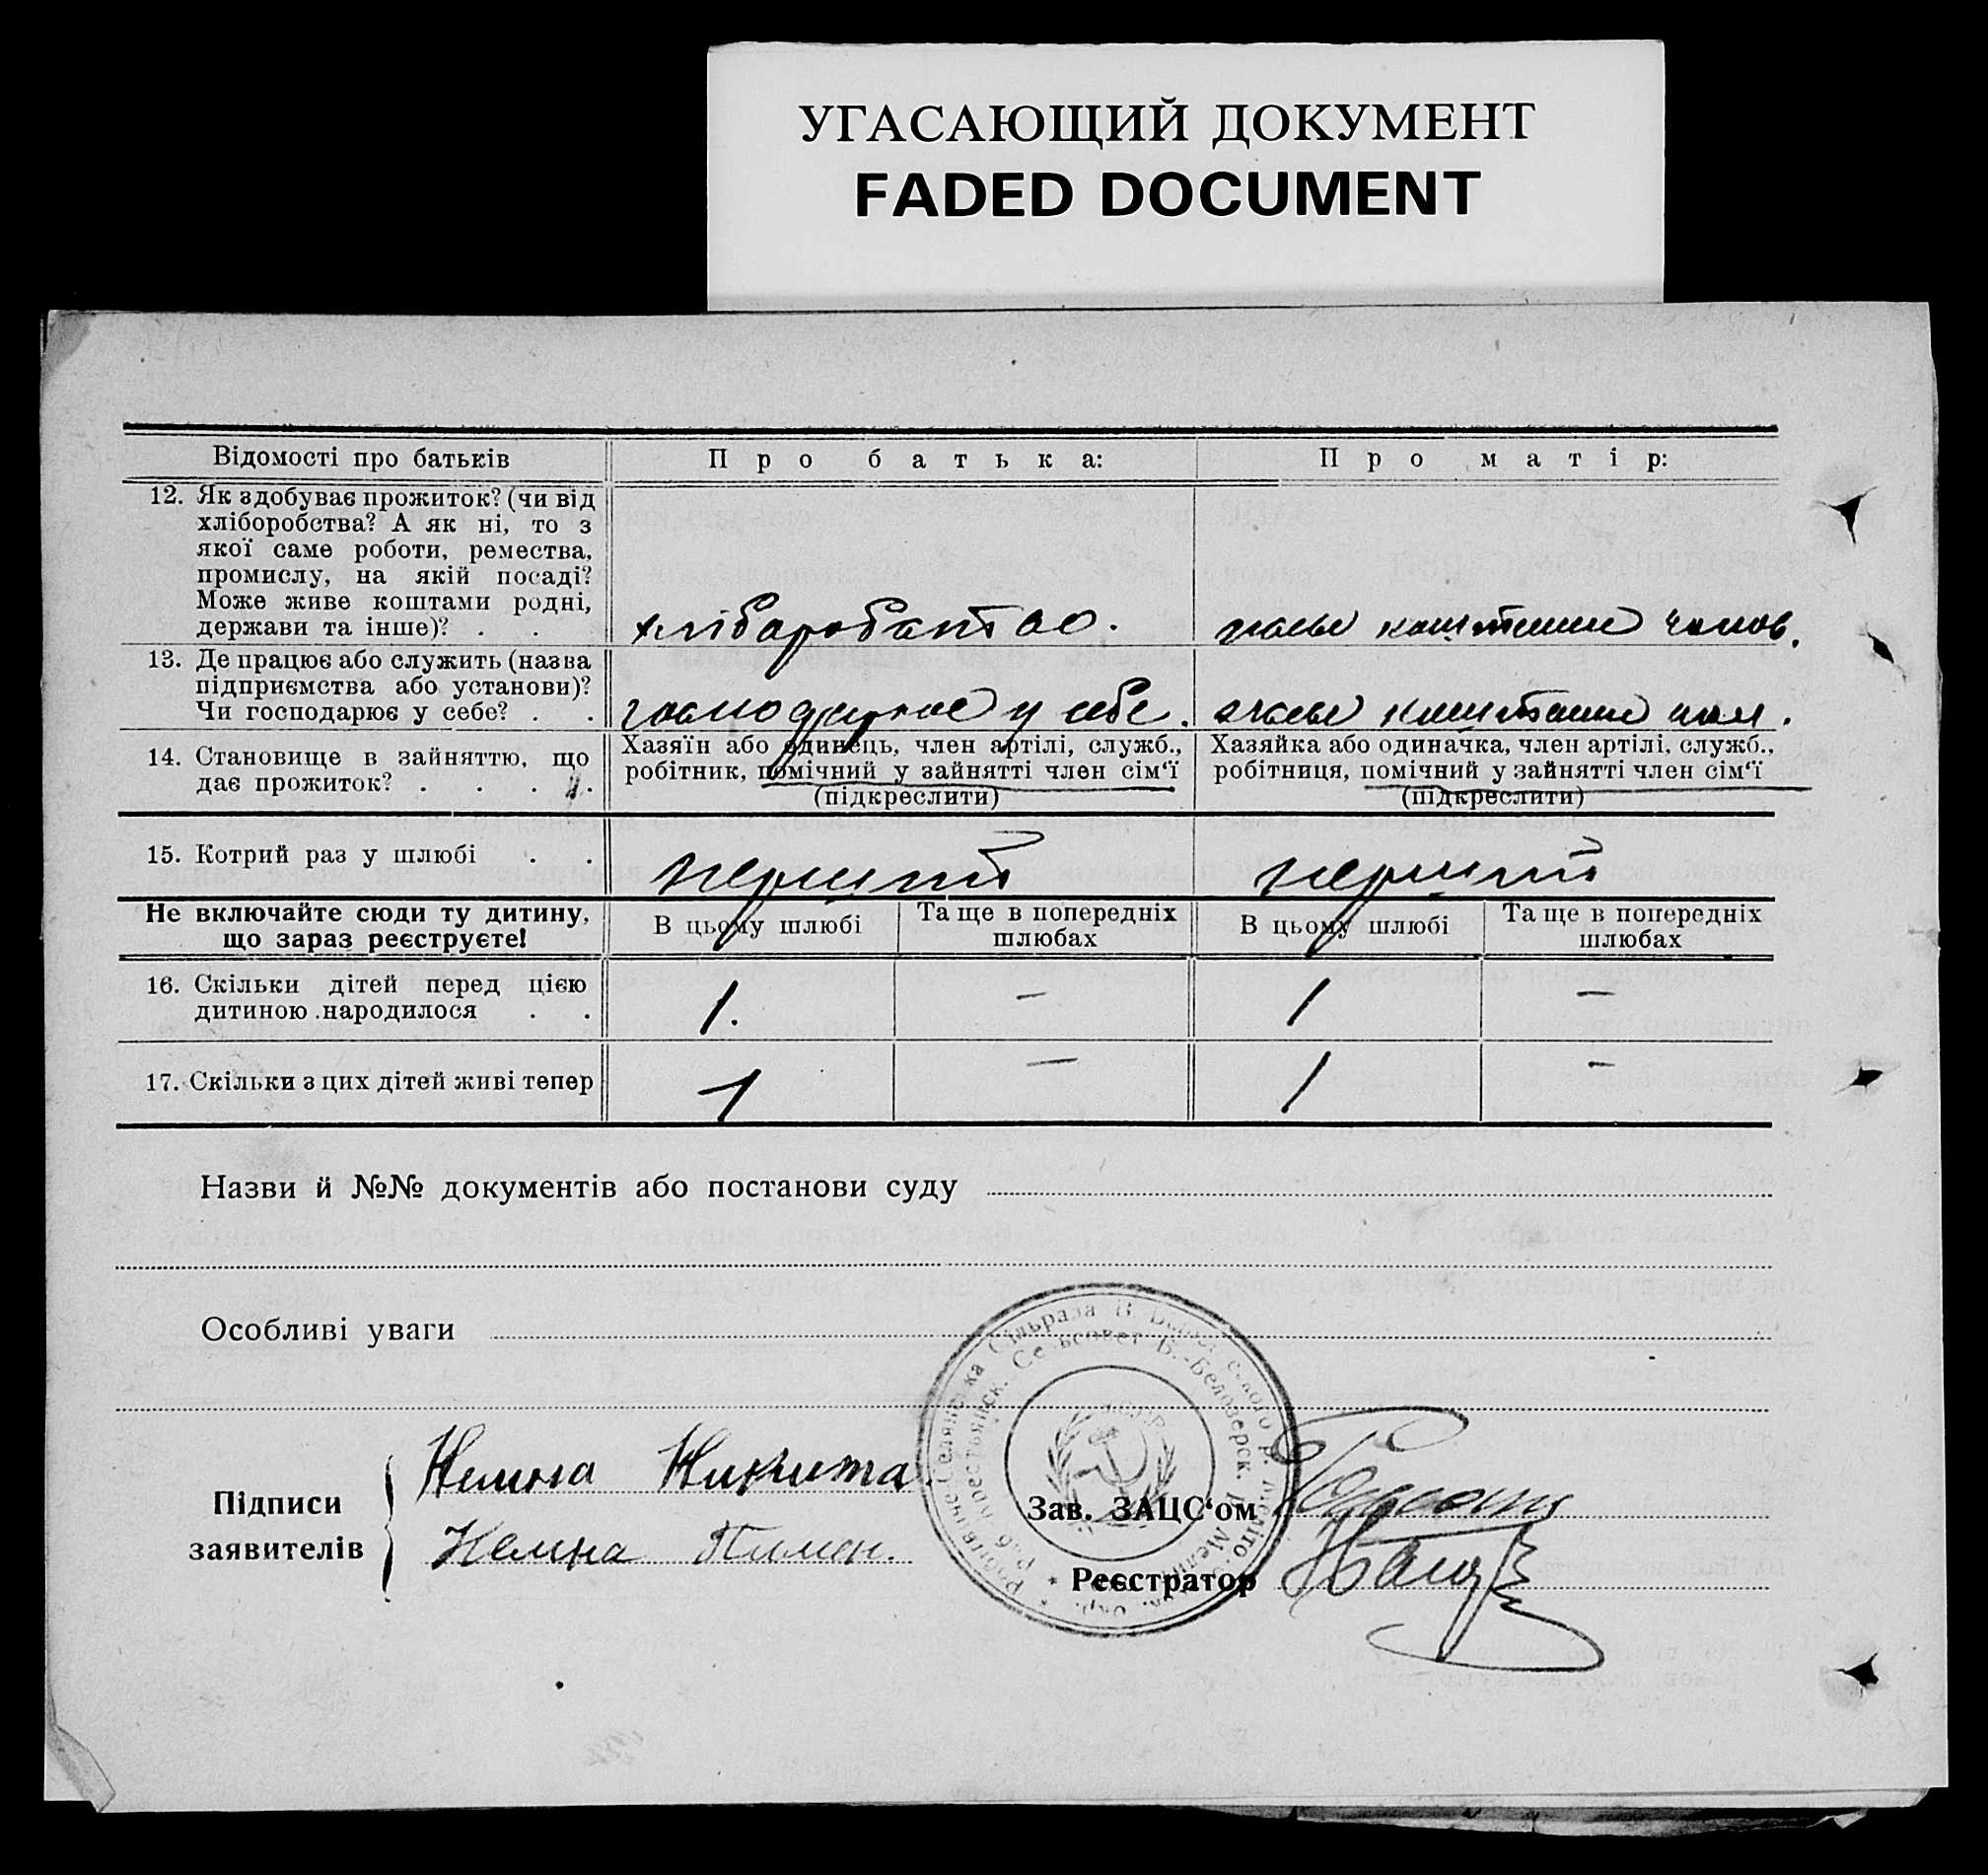 УГАСАЮЩИЙ ДОКУМЕНТ
FADED DOCUMENT
Відомості про батьків
Про батька:
Про матір:
12. Як здобуває прожиток? (чи від
хліборобства? А як ні, то з
якої саме роботи, ремества,
промислу, на якій посаді?
Може живе коштами родні,
держави та інше)? . .
хліборобство.
коштами чолов.
13. Де працює або служить (назва
підприємства або установи)?
Чи господарює у себе? . .
господарює у себе.
коштами
14. Становище в зайняттю, що
дає прожиток? . . . .
Хазяїн або одинець, член артілі, служб.,
робітник, помічний у зайнятті член сім‘ї
(підкреслити)
Хазяйка або одиначка, член артілі, служб.,
робітниця, помічний у зайнятті член сім‘ї
(підкреслити)
15. Котрий раз у шлюбі . .
перший
перший
Не включайте сюди ту дитину,
що зараз реєструєте!
В цьому шлюбі
Та ще в попередніх
шлюбах
В цьому шлюбі
Та ще в попередніх
шлюбах
16. Скільки дітей перед цією
дитиною народилося . .
1.
—
1
—
17. Скільки з цих дітей живі тепер
1
—
1
—
Назви й №№ документів або постанови суду
Особливі уваги
Підписи
заявителів
Никита
Пимен.
Зав. ЗАЦС‘ом
Реєстратор
Сільрада В.
Сельсовет Б.-Белозерск.